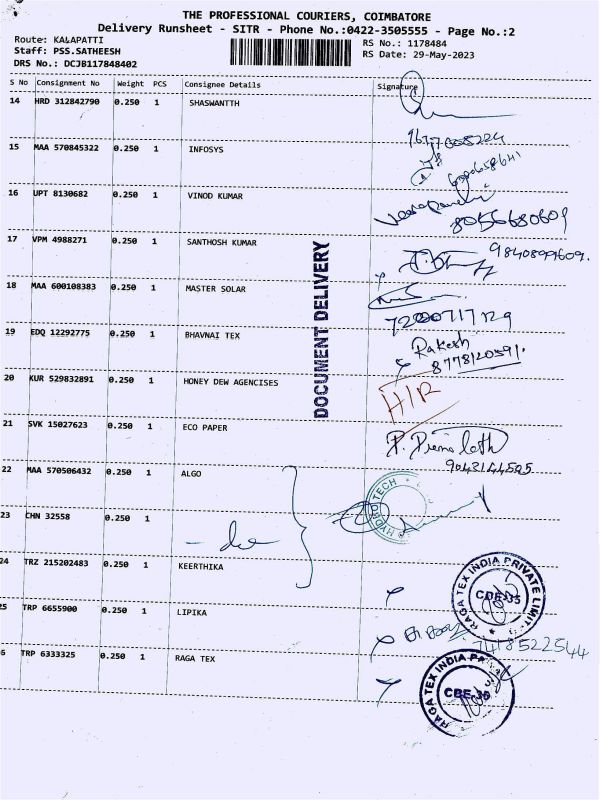 THE PROFESSIONAL COURIERS, COIMBATORE
Delivery Runsheet - SITR - Phone No.:0422-3505555 - Page No.:2
Route: KALAPATTI
Staff: PSS.SATHEESH
DRS No.: DCJB117848402
RS No.: 1178484
RS Date: 29-May-2023
S No Consignment No Weight PCS Consignee Details Signature
14 HRD 312842790 0.250 1 SHASWANTTH
15 MAA 570845322 0.250 1 INFOSYS
16 UPT 8130682 0.250 1 VINOD KUMAR
8056680609
17 VPM 4988271 0.250 1 SANTHOSH KUMAR
9840899609.
18 MAA 600108383 0.250 1 MASTER SOLAR
7200717129
19 EDQ 12292775 0.250 1 BHAVNAI TEX
Rakesh
8778120591.
20 KUR 529832891 0.250 1 HONEY DEW AGENCISES
H/R
21 SVK 15027623 0.250 1 ECO PAPER
9043144525
22 MAA 570506432 0.250 1 ALGO
HYDRO TECH
23 CHN 32558 0.250 1
- do
24 TRZ 215202483 0.250 1 KEERTHIKA
RAGA TEX INDIA PRIVATE LIMIT
CBE-35
25 TRP 6655900 0.250 1 LIPIKA
7418522544
6 TRP 6333325 0.250 1 RAGA TEX
RAGA TEX INDIA
DOCUMENT DELIVERY